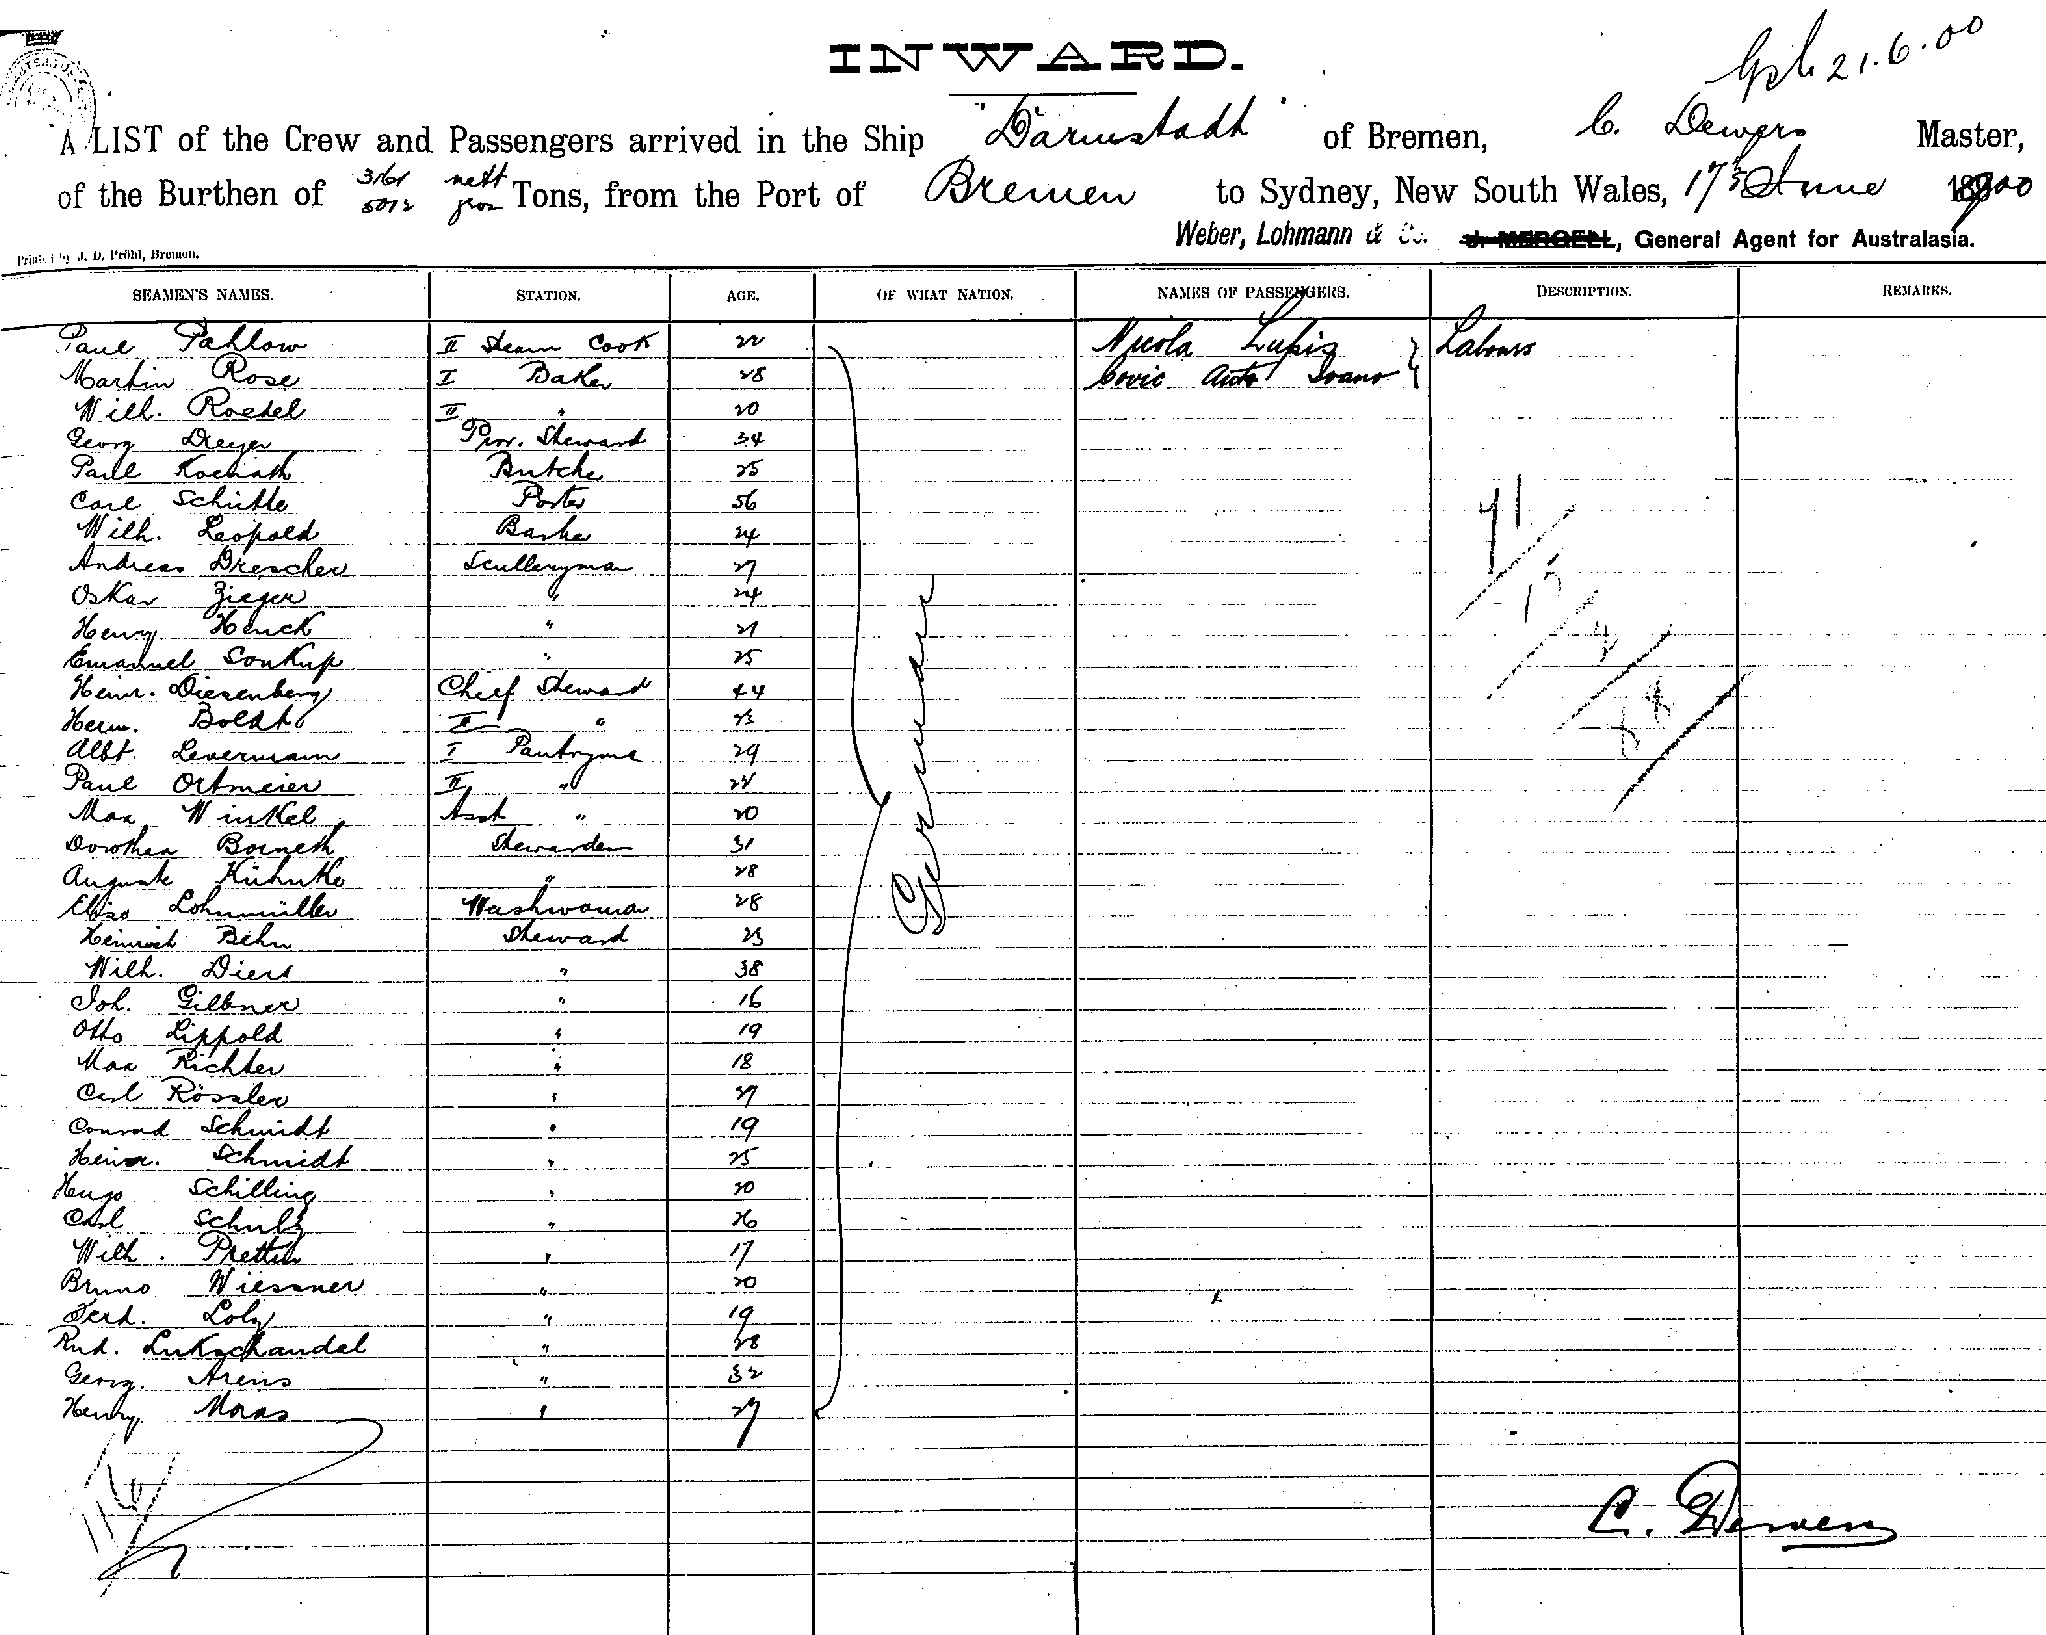 INWARD.
21.6.00
A LIST of the Crew and Passengers arrived in the Ship "Darmstadt" of Bremen, C. Dewers Master,
of the Burthen of 3161 nett 5012 gros Tons, from the Port of Bremen to Sydney, New South Wales, 17th June 1900
Weber, Lohmann & Co. J. MERGELL, General Agent for Australasia.
Printed by J. D. Pröhl, Bremen.
SEAMEN'S NAMES. STATION. AGE. OF WHAT NATION. NAMES OF PASSENGERS. DESCRIPTION. REMARKS.
Paul Pahlow II Steam Cook 22 Nicola Lupis Labours
Martin Rose I Baker 28 Covic Anto Ivano
Wilh. Roedel II " 20
Georg Dreyer Prov. Steward 34
Paul Butcher 25
Carl Schütte Porter 56
Wilh. Leopold 24
Andreas Drescher Sculleryman 27
Oskar Zieger " 24
Henry Henck " 21
Emanuel Soukup " 25
Heinr. Diesenberg Chief Steward 44
Herm. Boldt II " 23
Albt. Levermann I Pantryma 29
Paul Ortmeier II " 22
Max Winkel Asst " 20
Dorothea Borneth Stewardess 31
Auguste Kühnke " 28
Elise Lohmüller Washwoman 28
Heinrich Behn Steward 23
Wilh. Diers " 38
Joh. Gilbner " 16
Otto Lippold " 19
Max Richter " 18
Carl Rössler " 27
Conrad Schmidt " 19
Heinr. Schmidt " 25
Hugo Schilling " 20
Carl Schulz " 26
Wilh. Prettin " 17
Bruno Wiessner " 20
Ferd. Loly " 19
Rud. Lukschandel " 28
Georg. Arens " 32
Henry Maas " 27
German
71
15
2
88
114
C. Dewers